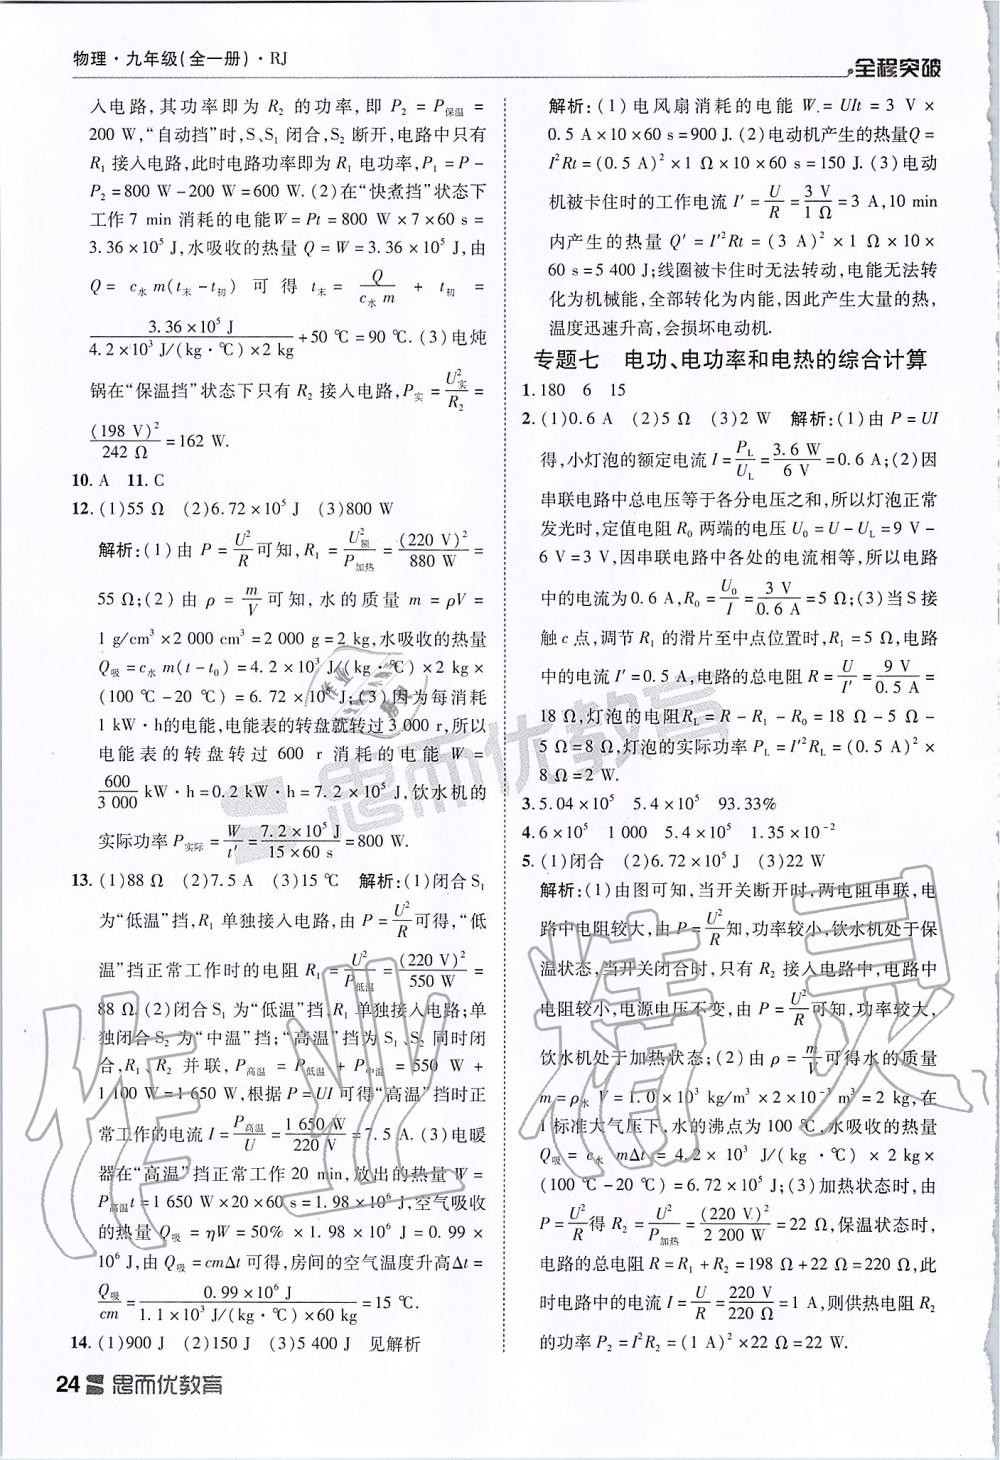 物理·九年级(全一册)·RJ
全程突破
入电路,其功率即为 R₂ 的功率,即 P₂ = P保温 =
200 W,“自动挡”时,S、S₁ 闭合,S₂ 断开,电路中只有
R₁ 接入电路,此时电路功率即为 R₁ 电功率,P₁ = P −
P₂ = 800 W − 200 W = 600 W. (2)在“快煮挡”状态下
工作7 min 消耗的电能 W = Pt = 800 W × 7 × 60 s =
3.36×10⁵ J,水吸收的热量 Q = W = 3.36×10⁵ J,由
Q = c水 m(t末 − t初) 可得 t末 = Q/(c水 m) + t初 =
3.36×10⁵ J/(4.2×10³ J/(kg·℃)×2 kg) + 50 ℃ = 90 ℃. (3)电炖
锅在“保温挡”状态下只有 R₂ 接入电路,P实 = U实²/R₂ =
(198 V)²/242 Ω = 162 W.
10. A 11. C
12. (1)55 Ω (2)6.72×10⁵ J (3)800 W
解析:(1)由 P = U²/R 可知,R₁ = U额²/P加热 = (220 V)²/880 W =
55 Ω;(2)由 ρ = m/V 可知,水的质量 m = ρV =
1 g/cm³ × 2 000 cm³ = 2 000 g = 2 kg,水吸收的热量
Q吸 = c水 m(t − t₀) = 4.2×10³ J/(kg·℃)×2 kg×
(100 ℃ − 20 ℃) = 6.72×10⁵ J;(3)因为每消耗
1 kW·h的电能,电能表的转盘就转过 3 000 r,所以
电能表的转盘转过 600 r 消耗的电能 W =
600/3 000 kW·h = 0.2 kW·h = 7.2×10⁵ J,饮水机的
实际功率 P实际 = W/t′ = 7.2×10⁵ J/(15×60 s) = 800 W.
13. (1)88 Ω (2)7.5 A (3)15 ℃ 解析:(1)闭合 S₁
为“低温”挡,R₁ 单独接入电路,由 P = U²/R 可得,“低
温”挡正常工作时的电阻 R₁ = U²/P低温 = (220 V)²/550 W =
88 Ω. (2)闭合 S₁ 为“低温”挡,R₁ 单独接入电路;单
独闭合 S₂ 为“中温”挡;“高温”挡为 S₁、S₂ 同时闭
合,R₁、R₂ 并联,P高温 = P低温 + P中温 = 550 W +
1 100 W = 1 650 W,根据 P = UI 可得“高温”挡时正
常工作的电流 I = P高温/U = 1 650 W/220 V = 7.5 A. (3)电暖
器在“高温”挡正常工作 20 min,放出的热量 W =
P高温t = 1 650 W×20×60 s = 1.98×10⁶ J,空气吸收
的热量 Q吸 = ηW = 50% × 1.98 × 10⁶ J = 0.99 ×
10⁶ J,由 Q吸 = cmΔt 可得,房间的空气温度升高Δt =
Q吸/cm = 0.99×10⁶ J/(1.1×10³ J/(kg·℃)×60 kg) = 15 ℃.
14. (1)900 J (2)150 J (3)5 400 J 见解析
解析:(1)电风扇消耗的电能 W = UIt = 3 V ×
0.5 A×10×60 s = 900 J. (2)电动机产生的热量Q =
I²Rt = (0.5 A)²×1 Ω×10×60 s = 150 J. (3)电动
机被卡住时的工作电流 I′ = U/R = 3 V/1 Ω = 3 A,10 min
内产生的热量 Q′ = I′²Rt = (3 A)² × 1 Ω × 10 ×
60 s = 5 400 J;线圈被卡住时无法转动,电能无法转
化为机械能,全部转化为内能,因此产生大量的热,
温度迅速升高,会损坏电动机.
专题七 电功、电功率和电热的综合计算
1. 180 6 15
2. (1)0.6 A (2)5 Ω (3)2 W 解析:(1)由 P = UI
得,小灯泡的额定电流 I = P_L/U_L = 3.6 W/6 V = 0.6 A;(2)因
串联电路中总电压等于各分电压之和,所以灯泡正常
发光时,定值电阻 R₀ 两端的电压 U₀ = U − U_L = 9 V −
6 V = 3 V,因串联电路中各处的电流相等,所以电路
中的电流为0.6 A,R₀ = U₀/I = 3 V/0.6 A = 5 Ω;(3)当 S 接
触 c 点,调节 R₁ 的滑片至中点位置时,R₁ = 5 Ω,电路
中的电流 I′ = 0.5 A,电路的总电阻 R = U/I′ = 9 V/0.5 A =
18 Ω,灯泡的电阻R_L = R − R₁ − R₀ = 18 Ω − 5 Ω −
5 Ω = 8 Ω,灯泡的实际功率 P_L = I′²R_L = (0.5 A)² ×
8 Ω = 2 W.
3. 5.04×10⁵ 5.4×10⁵ 93.33%
4. 6×10⁵ 1 000 5.4×10⁵ 1.35×10⁻²
5. (1)闭合 (2)6.72×10⁵ J (3)22 W
解析:(1)由图可知,当开关断开时,两电阻串联,电
路中电阻较大,由 P = U²/R 知,功率较小,饮水机处于保
温状态,当开关闭合时,只有 R₂ 接入电路中,电路中
电阻较小,电源电压不变,由 P = U²/R 可知,功率较大,
饮水机处于加热状态;(2)由 ρ = m/V 可得水的质量
m = ρ水 V = 1.0×10³ kg/m³×2×10⁻³ m³ = 2 kg,在
1 标准大气压下,水的沸点为 100 ℃,水吸收的热量
Q吸 = c水 mΔt = 4.2 × 10³ J/(kg·℃) × 2 kg×
(100 ℃ − 20 ℃) = 6.72×10⁵ J;(3)加热状态时,由
P = U²/R 得 R₂ = U²/P加热 = (220 V)²/2 200 W = 22 Ω,保温状态时,
电路的总电阻 R = R₁ + R₂ = 198 Ω + 22 Ω = 220 Ω,此
时电路中的电流 I = U/R = 220 V/220 Ω = 1 A,则供热电阻 R₂
的功率 P₂ = I²R₂ = (1 A)²×22 Ω = 22 W.
24 思而优教育
思而优教育
作业精灵